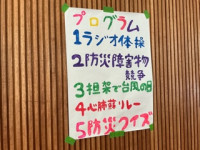 プログラム
1ラジオ体操
2防災障害物
競争
3担架で台風の目
4心肺蘇リレー
5防災クイズ